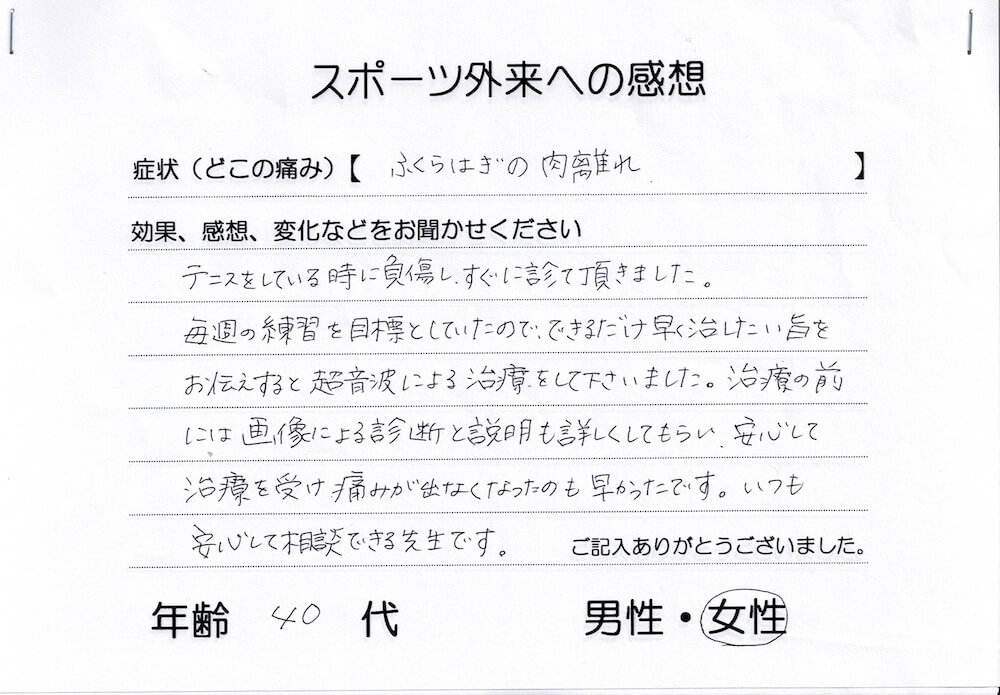 スポーツ外来への感想
症状（どこの痛み）【 ふくらはぎの肉離れ 】
効果、感想、変化などをお聞かせください
テニスをしている時に負傷し、すぐに診て頂きました。
毎週の練習を目標としていたので、できるだけ早く治したい旨を
お伝えすると超音波による治療をして下さいました。治療の前
には画像による診断と説明も詳しくしてもらい、安心して
治療を受け痛みが出なくなったのも早かったです。いつも
安心して相談できる先生です。 ご記入ありがとうございました。
年齢 40 代 男性・女性